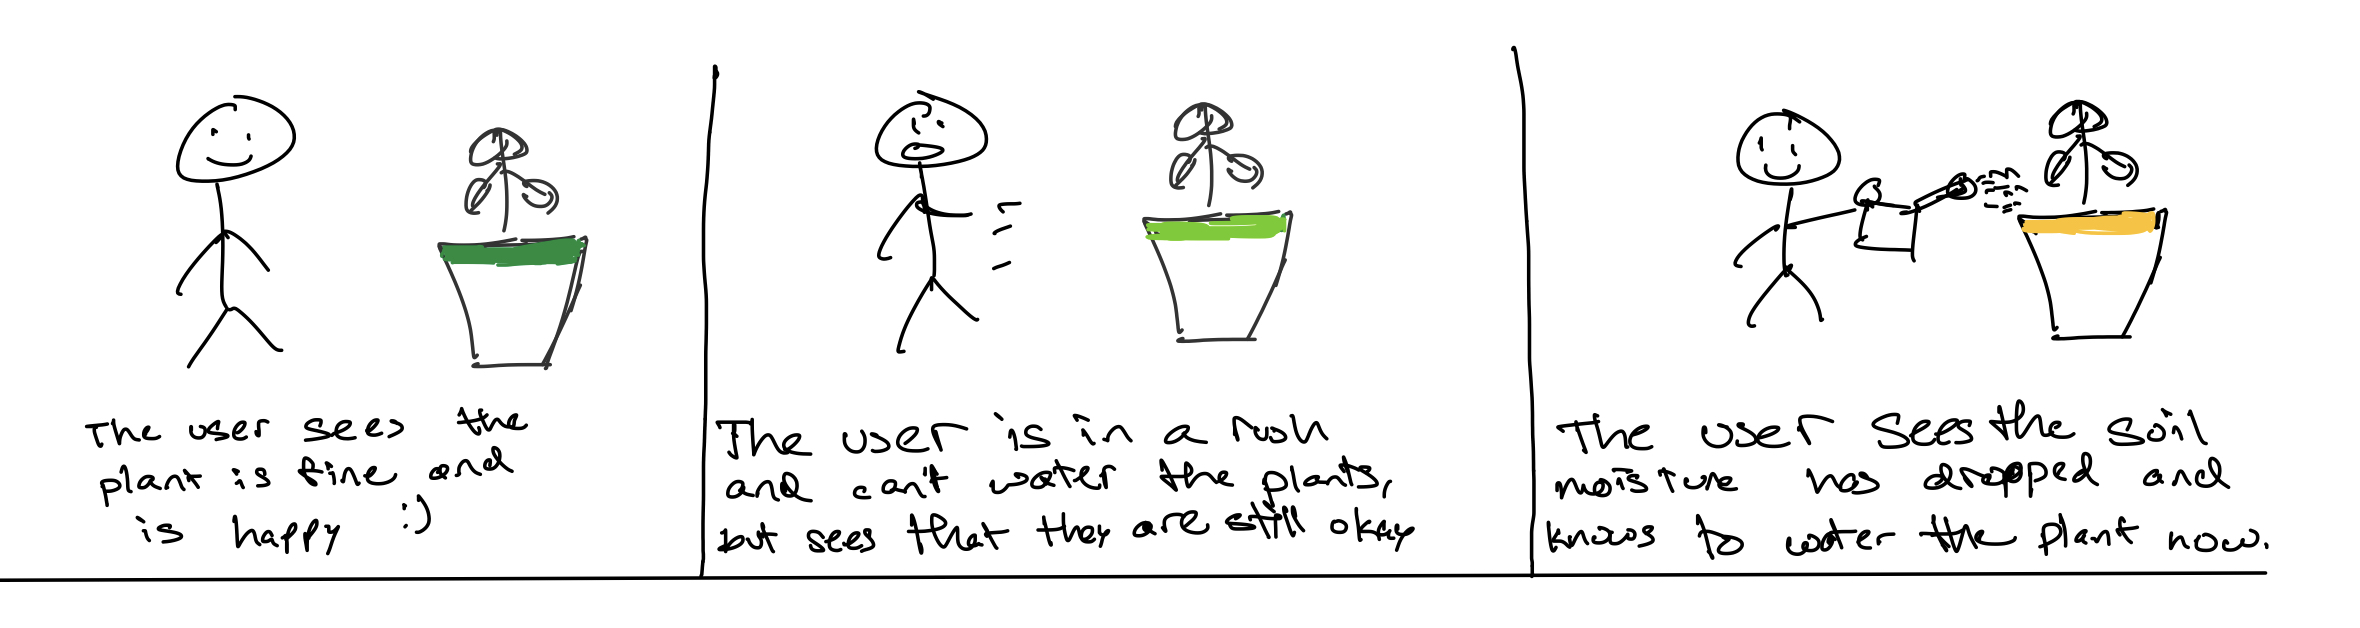 The user sees the
plant is fine and
is happy :)
The user is in a rush
and can't water the plants,
but sees that they are still okay
The user sees the soil
moisture has dropped and
knows to water the plant now.